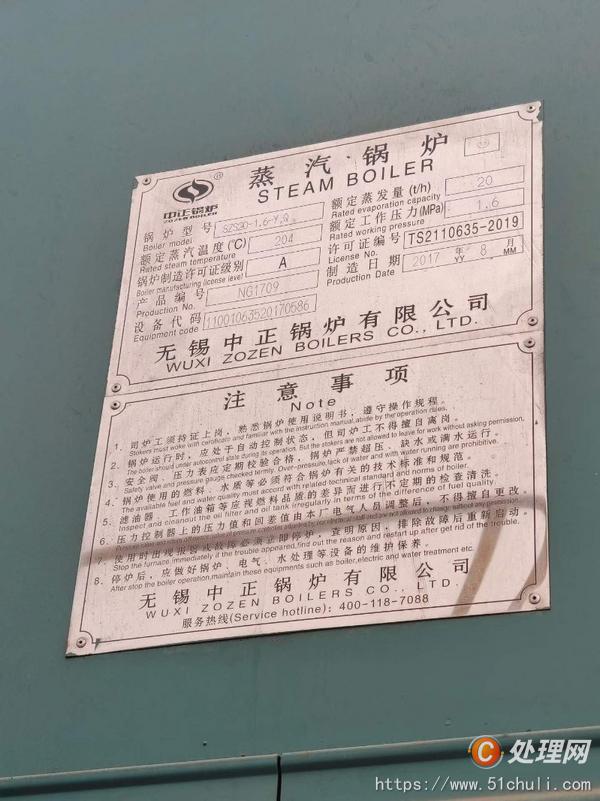 蒸汽锅炉
STEAM BOILER
中正锅炉 ®
ZOZEN BOILER
锅炉型号 SZS20-1.6-Y,Q
Boiler model
额定蒸发量(t/h) 20
Rated evaporation capacity
额定蒸汽温度(℃) 204
Rated steam temperature
额定工作压力(MPa) 1.6
Rated working pressure
锅炉制造许可证级别 A
Boiler manufacturing license level
许可证编号 TS2110635-2019
License No.
产品编号 NG1709
Production No.
制造日期 2017 年 8 月
Production Date YY MM
设备代码 11001063520170586
Equipment code
无锡中正锅炉有限公司
WUXI ZOZEN BOILERS CO., LTD.
注意事项
Note
1、司炉工须持证上岗，熟悉锅炉使用说明书；遵守操作规程。
Stokers must woke with cerofixatio and familiar with the instruction manual,abide by the operation rules.
2、锅炉运行时，应处于自动控制状态，但司炉工不得擅自离岗。
The boiler should under autocontrol state during its operation. But the stokers are not allowed to leave for work without asking permission.
3、安全阀、压力表应定期校验合格，锅炉严禁超压、缺水或满水运行。
Safety valve and pressure gauge checked termly. Over-pressure,lack of water and with water running are prohibitive.
4、锅炉使用的燃料、水质等必须符合锅炉有关的技术标准和规范。
The available fuel and water quality must accord with related technical standard and norms of boiler.
5、滤油器、工作油箱等应视燃料品质的差异而进行不定期的检查清洗。
Inspect and cleanout the oil filter and oil tank irregularly in terms of the difference of fuel quality
6、压力控制器上的压力值和回差值由本厂电气人员调整后，不得擅自更改。
7、使用时出现报警或故障必须立即停炉，查明原因，排除故障后重新启动。
Stop the furnace immediately if the trouble appeared,find out the reason and restart up after get rid of the trouble.
8、停炉后，应做好锅炉、电气、水处理等设备的维护保养。
After stop the boiler operation,maintain these equipments such as boiler,electric and water treatment etc.
无锡中正锅炉有限公司
WUXI ZOZEN BOILERS CO., LTD.
服务热线(Service hotline): 400-118-7088
C 处理网
https://www.51chuli.com